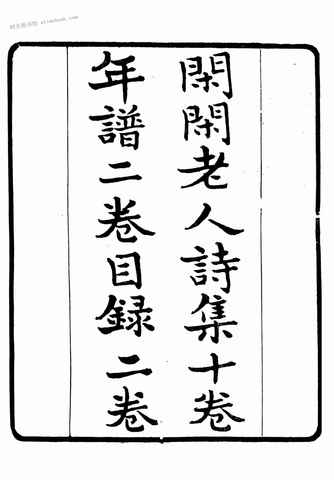 閑閑老人詩集十卷
年譜二卷目録二卷